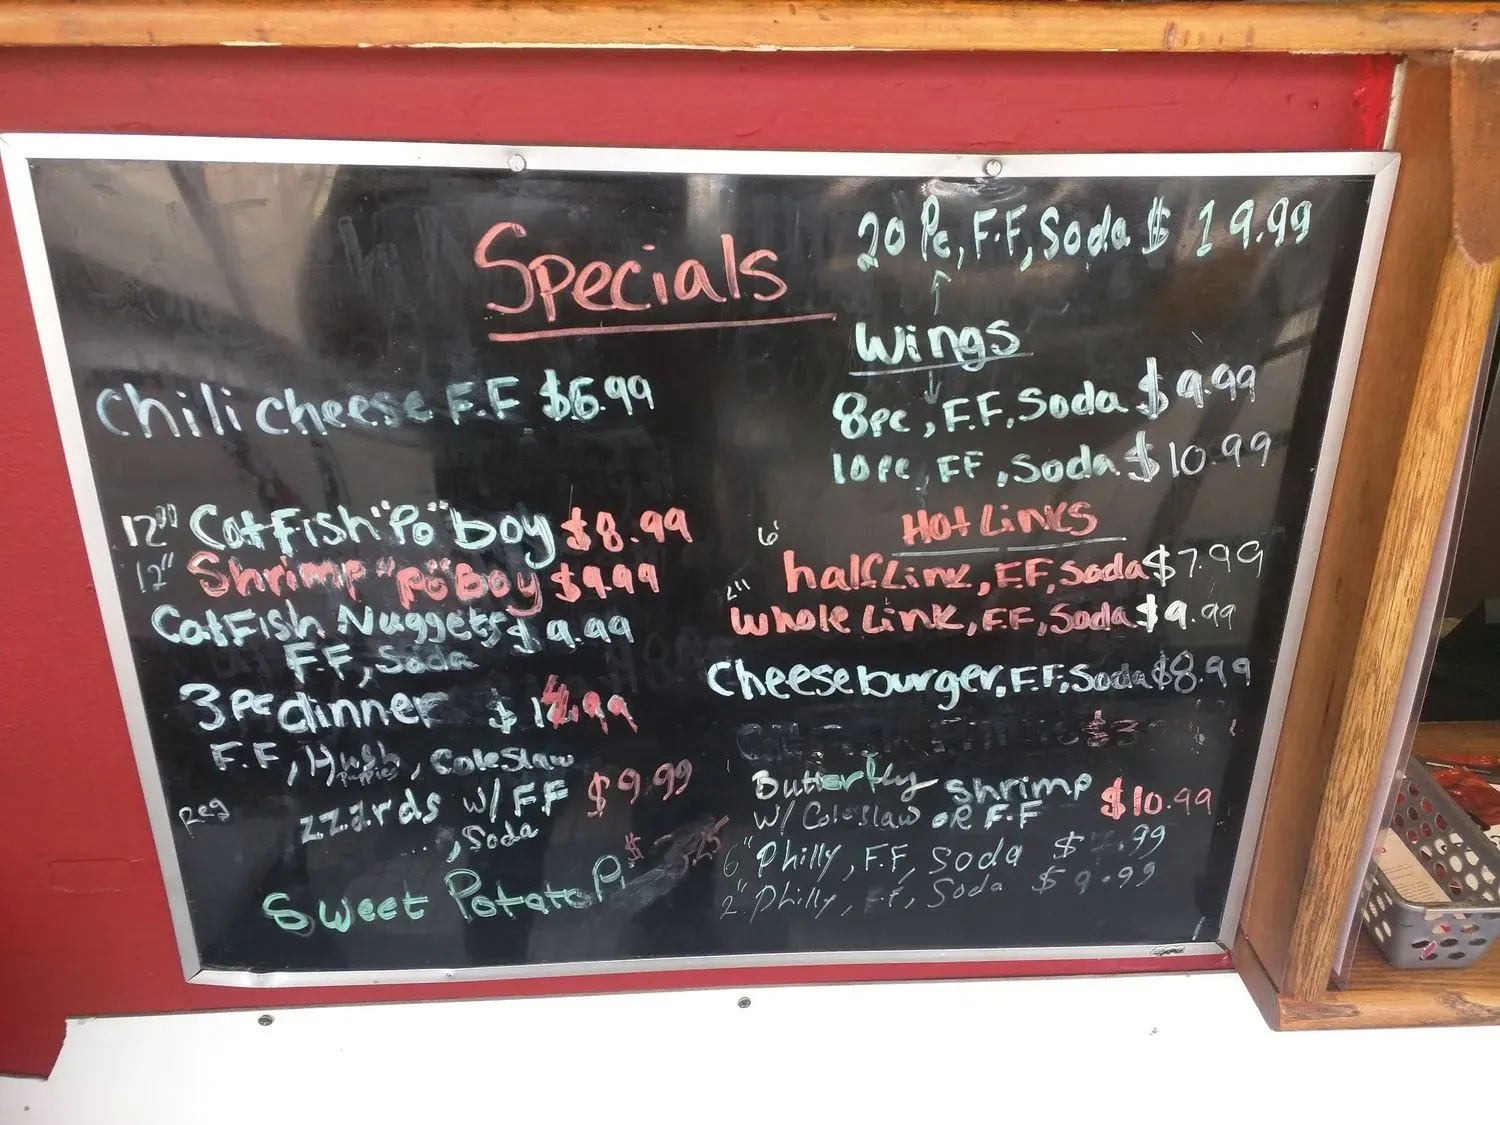 Specials
Chili Cheese F.F $6.99
12" CatFish "Po" boy $8.99
12" Shrimp "Po" Boy $9.99
CatFish Nuggets $9.99
F.F, Soda
3pc dinner
F.F, Hush puppies, Coleslaw
Reg
zzards w/ F.F $9.99
, Soda
Sweet Potato $3.25
20 Pc, F.F, Soda $ 19.99
Wings
8pc, F.F, Soda $9.99
10pc, FF, Soda $10.99
Hot Links
6" half Link, F.F, Soda $7.99
2" whole Link, F.F, Soda $9.99
Cheeseburger, F.F, Soda $8.99
Butterfly shrimp $10.99
w/ Coleslaw or F.F
6" Philly, F.F, Soda
2" Philly, F.F, Soda $9.99